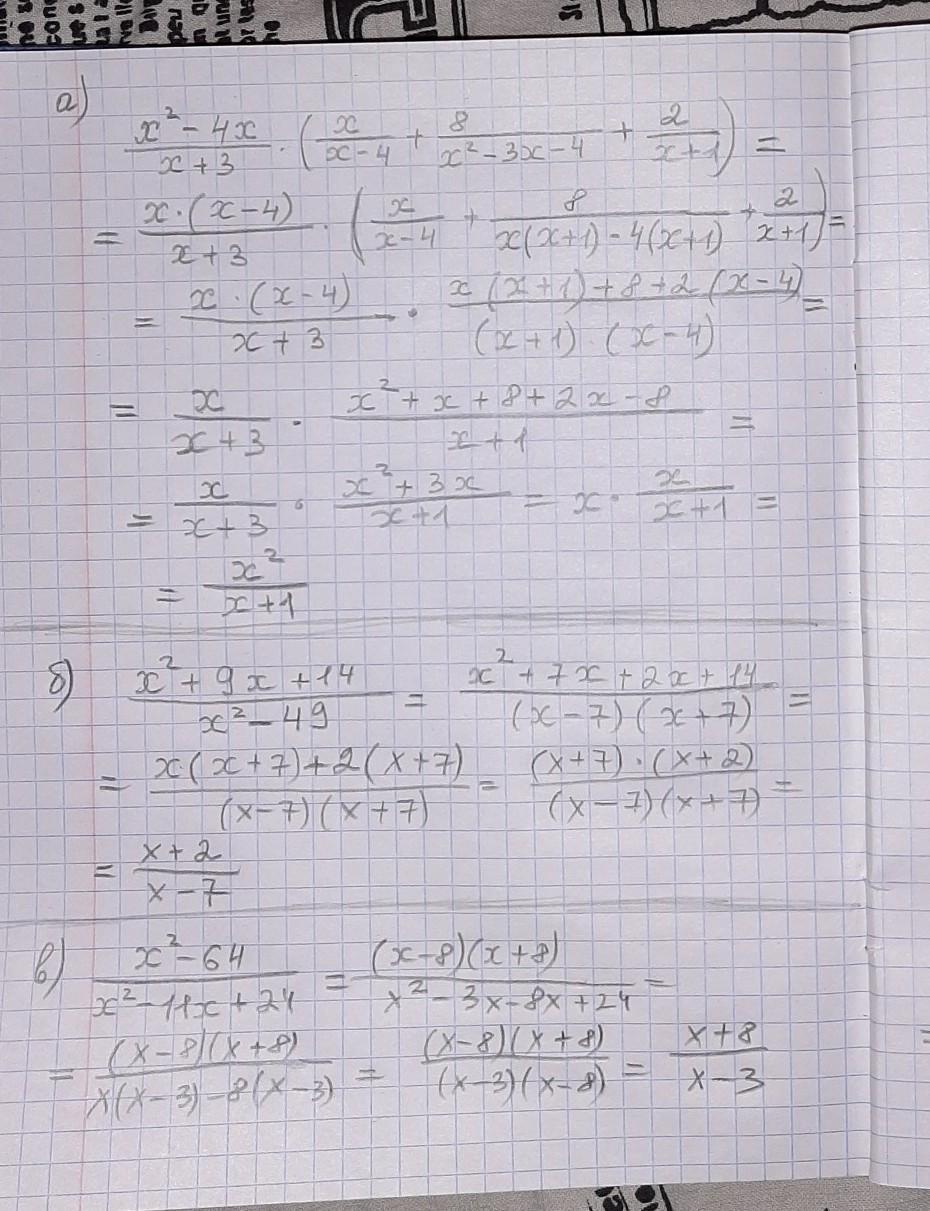 а)
(x² - 4x)/(x + 3) · (x/(x - 4) + 8/(x² - 3x - 4) + 2/(x + 1)) =
= (x · (x - 4))/(x + 3) · (x/(x - 4) + 8/(x(x + 1) - 4(x + 1) + 2/(x + 1)) =
= (x · (x - 4))/(x + 3) · (x(x + 1) + 8 + 2(x - 4))/((x + 1) · (x - 4)) =
= x/(x + 3) · (x² + x + 8 + 2x - 8)/(x + 1) =
= x/(x + 3) · (x² + 3x)/(x + 1) = x · x/(x + 1) =
= x²/(x + 1)
б) (x² + 9x + 14)/(x² - 49) = (x² + 7x + 2x + 14)/((x - 7)(x + 7)) =
= (x(x + 7) + 2(x + 7))/((x - 7)(x + 7)) = ((x + 7) · (x + 2))/((x - 7)(x + 7)) =
= (x + 2)/(x - 7)
в) (x² - 64)/(x² - 11x + 24) = ((x - 8)(x + 8))/(x² - 3x - 8x + 24) =
= ((x - 8)(x + 8))/(x(x - 3) - 8(x - 3)) = ((x - 8)(x + 8))/((x - 3)(x - 8)) = (x + 8)/(x - 3)